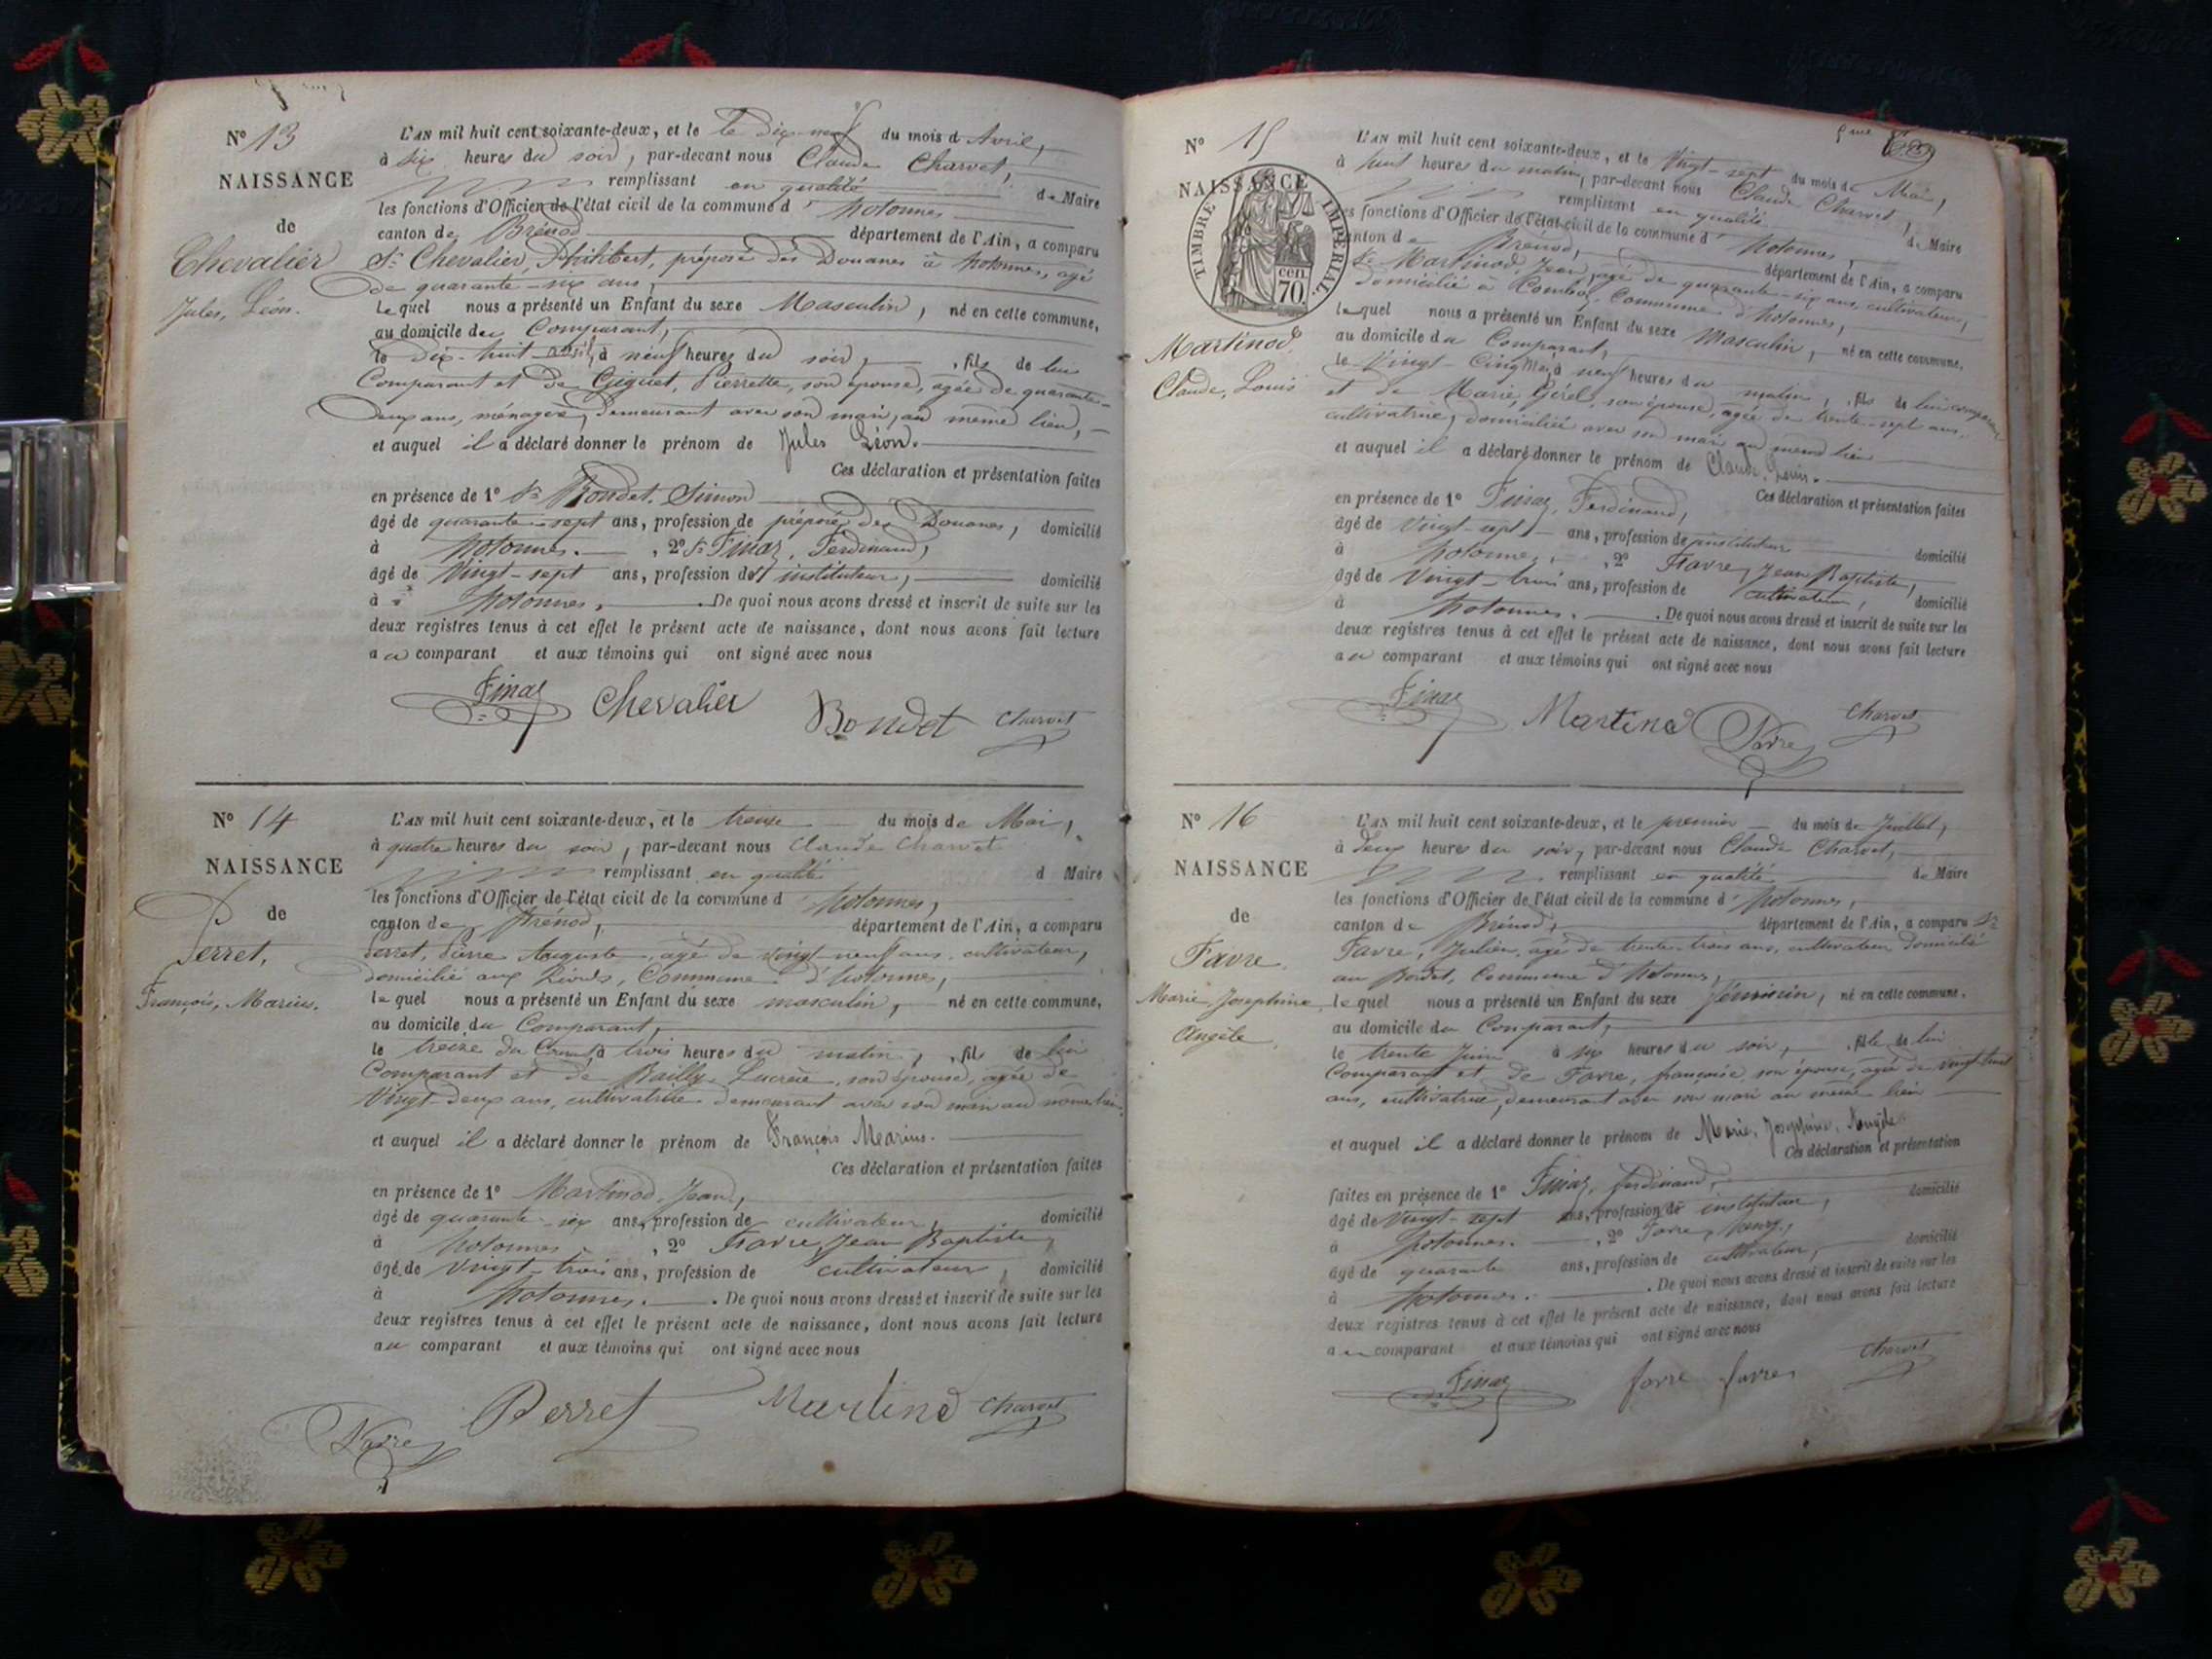 N° 13
NAISSANCE
de
Chevalier
Jules, Léon.
L'AN mil huit cent soixante-deux, et le le dix-neuf du mois d Avril,
à six heures du soir, par-devant nous Claude Charvet,
remplissant en qualité de Maire
les fonctions d'Officier de l'état civil de la commune d' hotonnes
canton de Brénod département de l'Ain, a comparu
Sr Chevalier, Philibert, préposé des Douanes à hotonnes, agé
de quarante-six ans,
lequel nous a présenté un Enfant du sexe Masculin, né en cette commune,
au domicile du Comparant,
le dix-huit avril, à neuf heures du soir, fils de lui
Comparant et de Giguet, Pierrette, son épouse, agée de quarante-
deux ans, ménagère, demeurant avec son mari, au même lieu,
et auquel il a déclaré donner le prénom de Jules Léon.
Ces déclaration et présentation faites
en présence de 1° Sr Bondet, Simon
âgé de quarante-sept ans, profession de préposé des Douanes, domicilié
à hotonnes. , 2° Sr Finaz, Ferdinand,
âgé de Vingt-sept ans, profession d' instituteur, domicilié
à hotonnes. De quoi nous avons dressé et inscrit de suite sur les
deux registres tenus à cet effet le présent acte de naissance, dont nous avons fait lecture
au comparant et aux témoins qui ont signé avec nous
Finaz Chevalier Bondet Charvet
N° 14
NAISSANCE
de
Perret,
François, Marius.
L'AN mil huit cent soixante-deux, et le treize du mois de Mai,
à quatre heures du soir, par-devant nous Claude Charvet
remplissant en qualité d Maire
les fonctions d'Officier de l'état civil de la commune d hotonnes,
canton de Brénod, département de l'Ain, a comparu
Perret, Pierre Auguste, agé de vingt-neuf ans, cultivateur,
domicilié aux Commune d'hotonnes,
lequel nous a présenté un Enfant du sexe masculin, né en cette commune,
au domicile du Comparant,
le treize du Courant à trois heures du matin, fils de lui
Comparant et de Bailly, Lucrèce, son épouse, agée de
Vingt-deux ans, cultivatrice demeurant avec son mari au même lieu,
et auquel il a déclaré donner le prénom de François Marius.
Ces déclaration et présentation faites
en présence de 1° Martinod, Jean,
âgé de quarante-six ans, profession de cultivateur, domicilié
à hotonnes , 2° Favre, Jean Baptiste,
âgé de Vingt-trois ans, profession de cultivateur, domicilié
à hotonnes. De quoi nous avons dressé et inscrit de suite sur les
deux registres tenus à cet effet le présent acte de naissance, dont nous avons fait lecture
au comparant et aux témoins qui ont signé avec nous
Favre Perret Martinod Charvet
N° 15
NAISSANCE
TIMBRE IMPERIAL
cen
70.
Martinod,
Claude, Louis
L'AN mil huit cent soixante-deux, et le Vingt-sept du mois de Mai,
à huit heures du matin, par-devant nous Claude Charvet,
remplissant en qualité de Maire
les fonctions d'Officier de l'état civil de la commune d' hotonnes,
canton de Brénod, département de l'Ain, a comparu
Sr Martinod, Jean, agé de quarante-six ans, cultivateur,
domicilié à Commune d'hotonnes,
lequel nous a présenté un Enfant du sexe Masculin, né en cette commune,
au domicile du Comparant,
le Vingt-Cinq Mai, à neuf heures du matin, fils de lui comparant
et de Marie, son épouse, agée de trente-sept ans,
cultivatrice, domiciliée avec son mari au même lieu
et auquel il a déclaré donner le prénom de Claude, Louis.
Ces déclaration et présentation faites
en présence de 1° Finaz, Ferdinand,
âgé de Vingt-sept ans, profession d'instituteur domicilié
à hotonnes, , 2° Favre, Jean Baptiste,
âgé de Vingt-trois ans, profession de cultivateur, domicilié
à hotonnes. De quoi nous avons dressé et inscrit de suite sur les
deux registres tenus à cet effet le présent acte de naissance, dont nous avons fait lecture
au comparant et aux témoins qui ont signé avec nous
Finaz Martinod Favre Charvet
N° 16
NAISSANCE
de
Favre
Marie Josephine
Angèle
L'AN mil huit cent soixante-deux, et le premier du mois de Juillet,
à deux heures du soir, par-devant nous Claude Charvet,
remplissant en qualité de Maire
les fonctions d'Officier de l'état civil de la commune d' hotonnes,
canton de Brénod, département de l'Ain, a comparu Sr
Favre, Julien, agé de trente-trois ans, cultivateur domicilié
au Commune d'hotonnes,
lequel nous a présenté un Enfant du sexe féminin, né en cette commune,
au domicile du Comparant,
le trente Juin à six heures du soir, fille de lui
Comparant et de Favre, françoise, son épouse, agée de vingt-huit
ans, cultivatrice, demeurant avec son mari au même lieu
et auquel il a déclaré donner le prénom de Marie, Josephine, Angèle.
Ces déclaration et présentation
faites en présence de 1° Finaz, ferdinand,
âgé de Vingt-sept ans, profession d' instituteur, domicilié
à hotonnes. , 2° Favre,
âgé de quarante ans, profession de cultivateur, domicilié
à hotonnes. De quoi nous avons dressé et inscrit de suite sur les
deux registres tenus à cet effet le présent acte de naissance, dont nous avons fait lecture
au comparant et aux témoins qui ont signé avec nous
Finaz favre favre Charvet